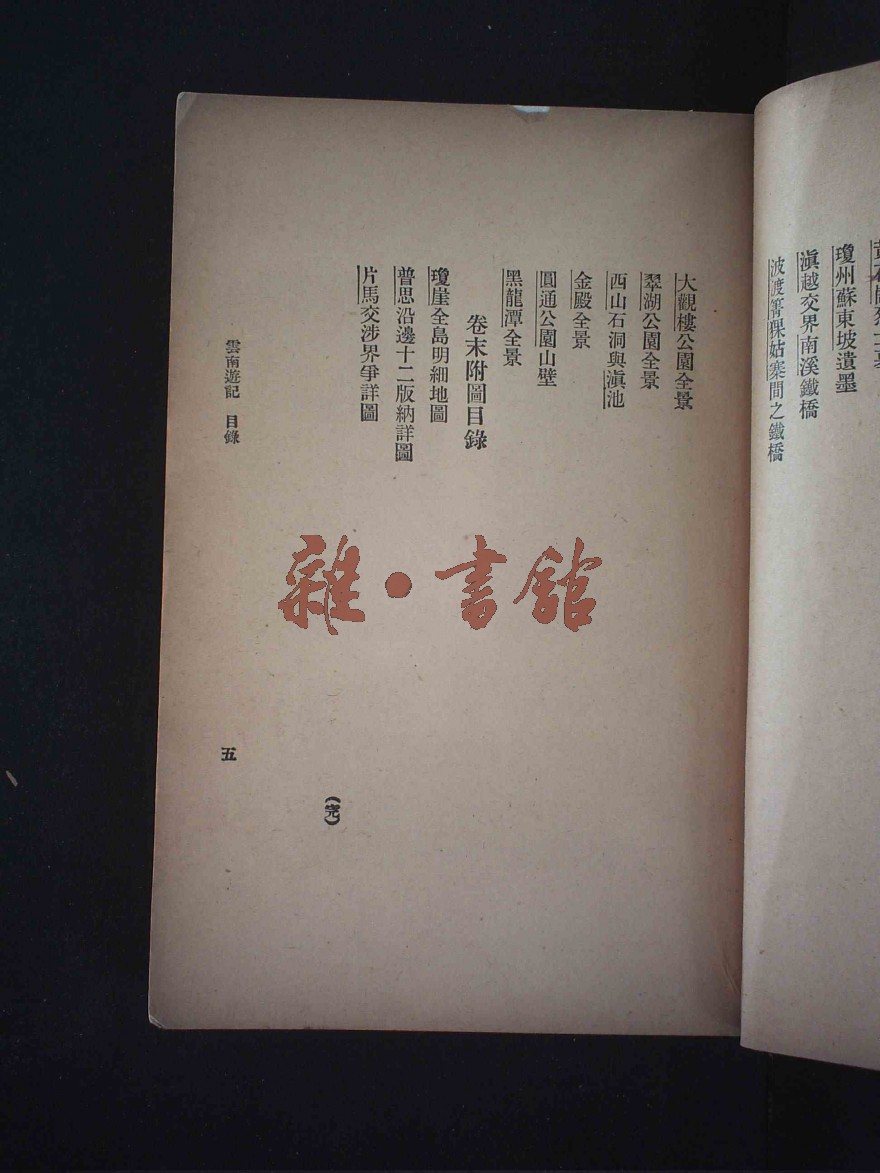 瓊州蘇東坡遺墨
滇越交界南溪鐵橋
波渡箐猓姑寨間之鐵橋
大觀樓公園全景
翠湖公園全景
西山石洞與滇池
金殿全景
圓通公園山壁
黑龍潭全景
卷末附圖目錄
瓊崖全島明細地圖
普思沿邊十二版納詳圖
片馬交涉界爭詳圖
(完)
雲南遊記 目錄
五
雜·書館